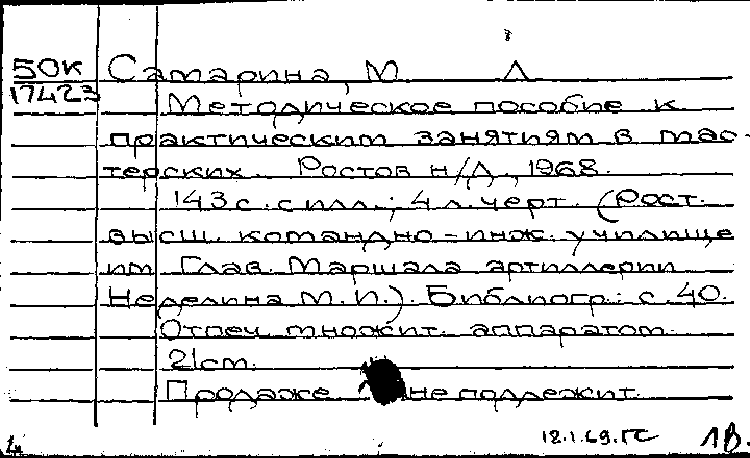 50К Самарина, М Л
17423
Методическое пособие к
практическим занятиям в мас-
терских. Ростов н/Д., 1968.
143 с. с илл.; 4 л. черт. (Рост.
высш. командно-инж. училище
им Глав. Маршала артиллерии
Неделина М.И.). Библиогр.: с. 40.
Отпеч. множит. аппаратом.
21см.
Продаже не подлежит.
18.1.69.ГС 1В.